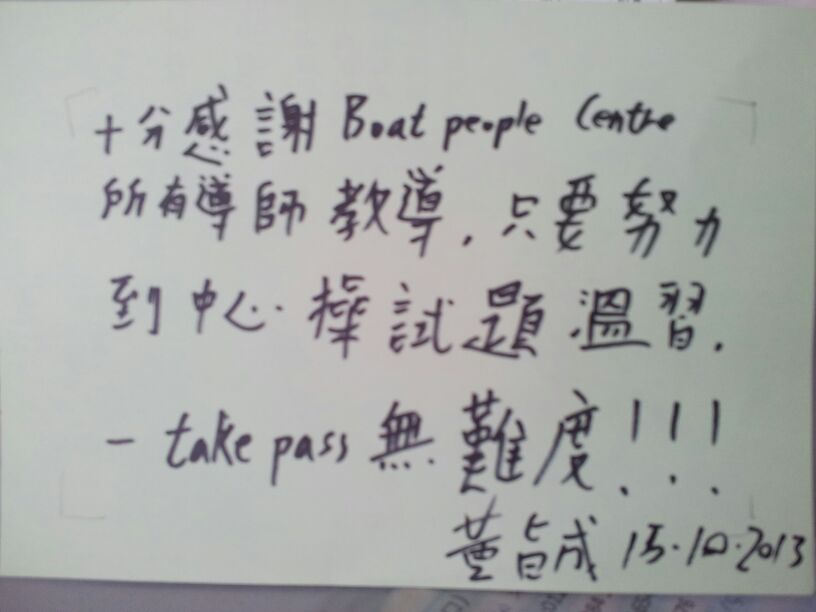 十分感謝 Boat people Centre
所有導師教導，只要努力
到中心操試題溫習．
一 take pass 無難度！！！
董皆成 15.10.2013